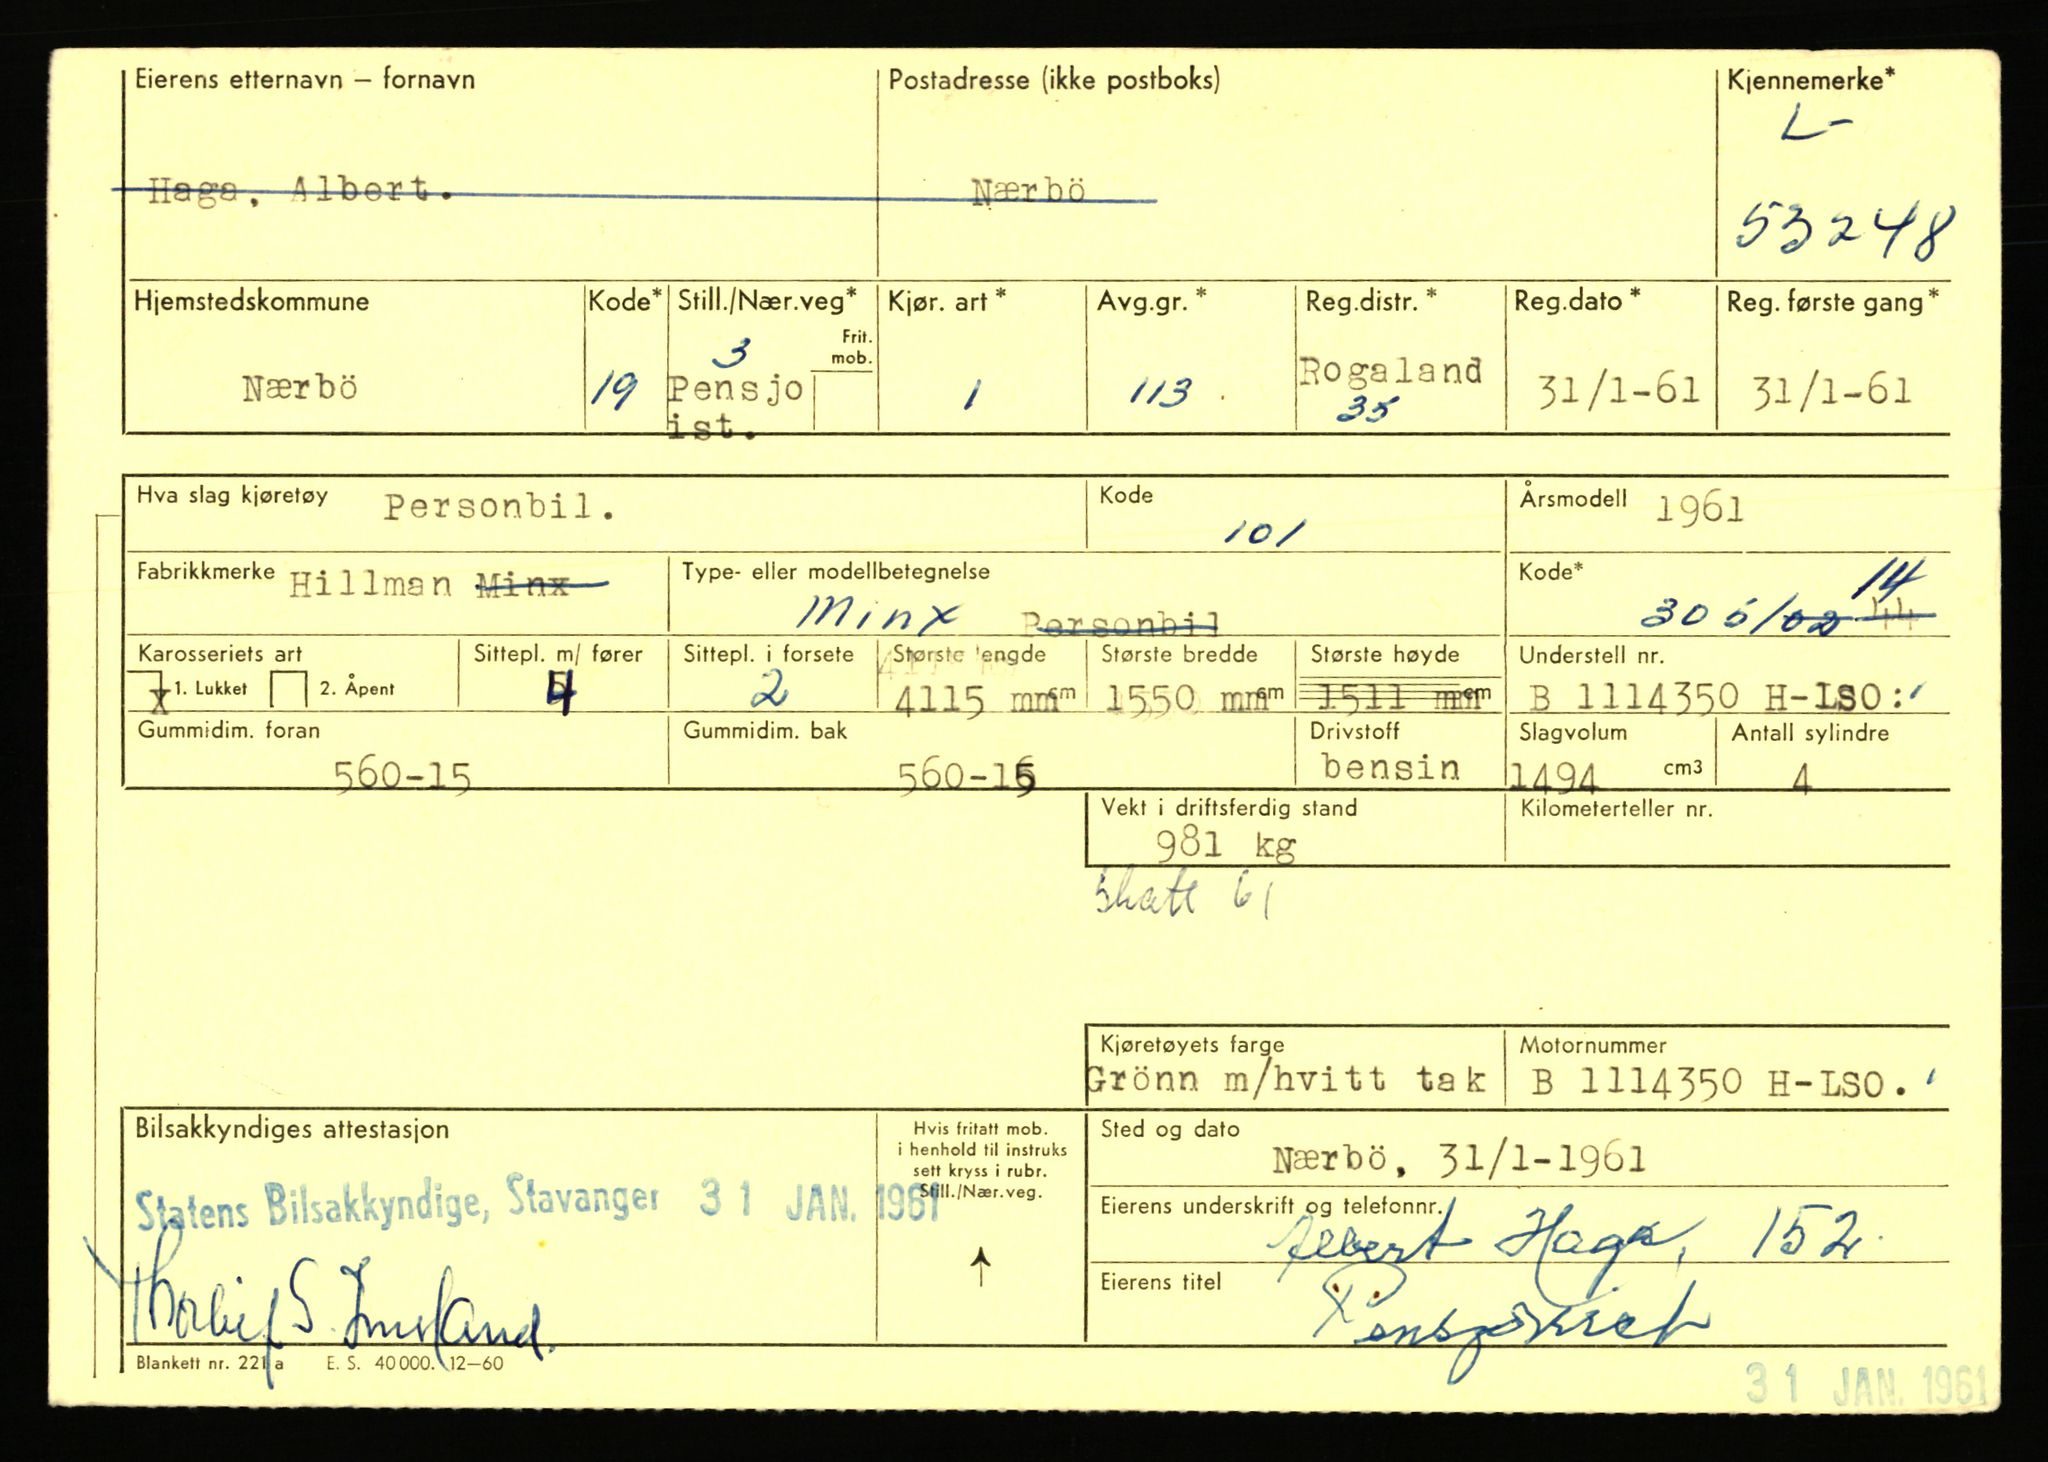 Eierens etternavn – fornavn
Postadresse (ikke postboks)
Kjennemerke*
L-
Haga, Albert.
Nærbö
53248
Hjemstedskommune
Kode*
Still./Nær.veg*
Frit. mob.
Kjør. art*
Avg.gr.*
Reg.distr.*
Reg.dato*
Reg. første gang*
Nærbö
19
3
Pensjo
ist.
1
113
Rogaland
35
31/1-61
31/1-61
Hva slag kjøretøy Personbil.
Kode
101
Årsmodell 1961
Fabrikkmerke Hillman Minx
Type- eller modellbetegnelse
Minx Personbil
Kode*
14
305/02 44
Karosseriets art
x 1. Lukket 2. Åpent
Sittepl. m/ fører
4
Sittepl. i forsete
2
Største lengde
4115 mm cm
Største bredde
1550 mm cm
Største høyde
1511 mm cm
Understell nr.
B 1114350 H-LSO:
Gummidim. foran
560-15
Gummidim. bak
560-15
Drivstoff
bensin
Slagvolum
1494 cm3
Antall sylindre
4
Vekt i driftsferdig stand
981 kg
Kilometerteller nr.
Skatt 61
Kjøretøyets farge
Grönn m/hvitt tak
Motornummer
B 1114350 H-LSO.
Bilsakkyndiges attestasjon
Hvis fritatt mob.
i henhold til instruks
sett kryss i rubr.
Still./Nær.veg.
Sted og dato
Nærbö, 31/1-1961
Statens Bilsakkyndige, Stavanger 31 JAN. 1961
Eierens underskrift og telefonnr.
Albert Haga, 152.
Eierens titel
Pensjonist
Blankett nr. 221 a E. S. 40 000. 12–60
31 JAN. 1961